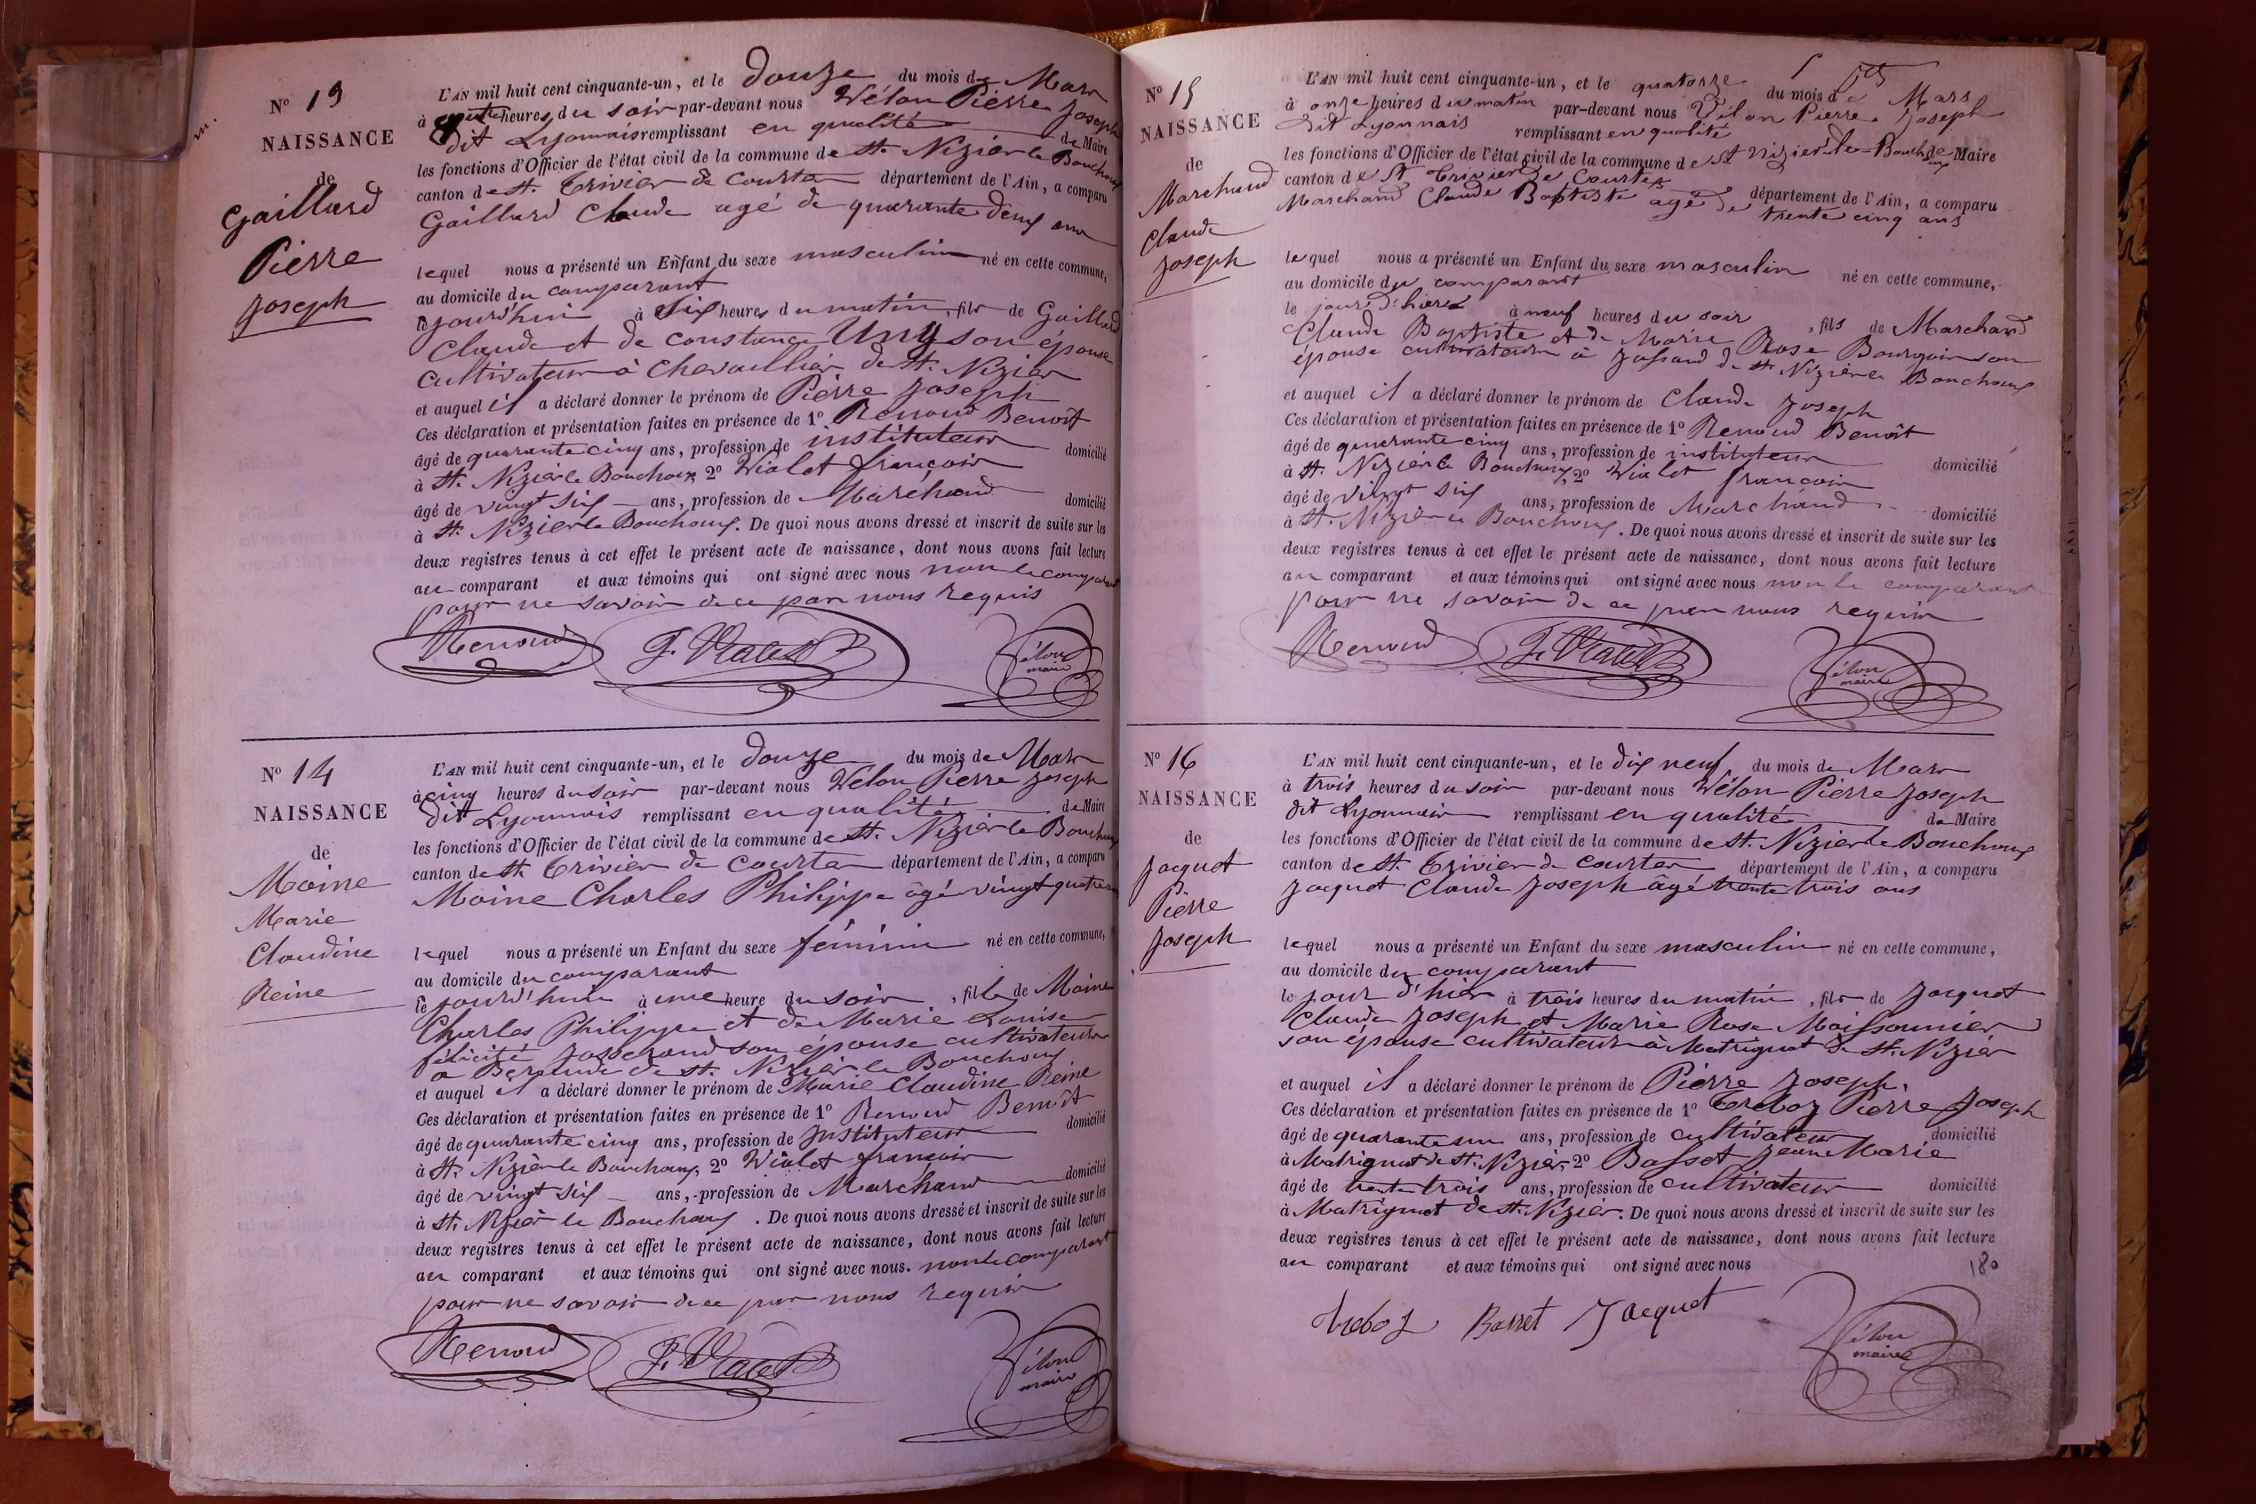 N° 13
NAISSANCE
de
Gaillard
Pierre
Joseph
L'AN mil huit cent cinquante-un, et le douze du mois de Mars
à heures du soir par-devant nous Vélon Pierre Joseph
dit Lyonnais remplissant en qualité de Maire
les fonctions d'Officier de l'état civil de la commune de St. Nizier le Bouchoux
canton de St. Trivier de Courtes département de l'Ain, a comparu
Gaillard Claude agé de quarante deux ans
lequel nous a présenté un Enfant du sexe masculin né en cette commune,
au domicile du comparant
le jourd'hui à six heures du matin, fils de Gaillard
Claude et de Constance Uny son épouse
cultivateurs à Chevaillier de St. Nizier
et auquel il a déclaré donner le prénom de Pierre Joseph
Ces déclaration et présentation faites en présence de 1° Renoud Benoît
âgé de quarante cinq ans, profession de instituteur domicilié
à St. Nizier le Bouchoux, 2° Vialet françois
âgé de vingt six ans, profession de Marchand domicilié
à St. Nizier le Bouchoux. De quoi nous avons dressé et inscrit de suite sur les
deux registres tenus à cet effet le présent acte de naissance, dont nous avons fait lecture
au comparant et aux témoins qui ont signé avec nous non le comparant
pour ne savoir de ce par nous requis
Renoud F. Vialet Vélon maire
N° 14
NAISSANCE
de
Moine
Marie
Claudine
Reine
L'AN mil huit cent cinquante-un, et le douze du mois de Mars
à cinq heures du soir par-devant nous Vélon Pierre Joseph
dit Lyonnais remplissant en qualité de Maire
les fonctions d'Officier de l'état civil de la commune de St. Nizier le Bouchoux
canton de St. Trivier de Courtes département de l'Ain, a comparu
Moine Charles Philippe âgé vingt quatre
lequel nous a présenté un Enfant du sexe féminin né en cette commune,
au domicile du comparant
le jourd'hui à une heure du soir, fille de Moine
Charles Philippe et de Marie Louise
félicité Josserand son épouse cultivateurs
a de St. Nizier le Bouchoux
et auquel il a déclaré donner le prénom de Marie Claudine Reine
Ces déclaration et présentation faites en présence de 1° Renoud Benoît
âgé de quarante cinq ans, profession de Instituteur domicilié
à St. Nizier le Bouchoux, 2° Vialet françois
âgé de vingt six ans, profession de Marchand domicilié
à St. Nizier le Bouchoux. De quoi nous avons dressé et inscrit de suite sur les
deux registres tenus à cet effet le présent acte de naissance, dont nous avons fait lecture
au comparant et aux témoins qui ont signé avec nous. non le comparant
pour ne savoir de ce par nous requis
Renoud F. Vialet Vélon maire
N° 15
NAISSANCE
de
Marchand
Claude
Joseph
L'AN mil huit cent cinquante-un, et le quatorze du mois de Mars
à onze heures du matin par-devant nous Vélon Pierre Joseph
dit Lyonnais remplissant en qualité de Maire
les fonctions d'Officier de l'état civil de la commune de St Nizier le Bouchoux
canton de St Trivier de Courtes département de l'Ain, a comparu
Marchand Claude Baptiste agé de trente cinq ans
lequel nous a présenté un Enfant du sexe masculin né en cette commune,
au domicile du comparant
le jour d'hier à neuf heures du soir, fils de Marchand
Claude Baptiste et de Marie Rose Bourgoin son
épouse cultivateurs à de St. Nizier le Bouchoux
et auquel il a déclaré donner le prénom de Claude Joseph
Ces déclaration et présentation faites en présence de 1° Renoud Benoît
âgé de quarante cinq ans, profession de instituteur domicilié
à St. Nizier le Bouchoux, 2° Vialet françois
âgé de vingt six ans, profession de Marchand domicilié
à St. Nizier le Bouchoux. De quoi nous avons dressé et inscrit de suite sur les
deux registres tenus à cet effet le présent acte de naissance, dont nous avons fait lecture
au comparant et aux témoins qui ont signé avec nous non le comparant
pour ne savoir de ce par nous requis
Renoud F. Vialet Vélon maire
N° 16
NAISSANCE
de
Jacquet
Pierre
Joseph
L'AN mil huit cent cinquante-un, et le dix neuf du mois de Mars
à trois heures du soir par-devant nous Vélon Pierre Joseph
dit Lyonnais remplissant en qualité de Maire
les fonctions d'Officier de l'état civil de la commune de St. Nizier le Bouchoux
canton de St. Trivier de Courtes département de l'Ain, a comparu
Jacquet Claude Joseph âgé trente trois ans
lequel nous a présenté un Enfant du sexe masculin né en cette commune,
au domicile du comparant
le jour d'hier à trois heures du matin, fils de Jacquet
Claude Joseph et Marie Rose Moissonnier
son épouse cultivateurs à Matrignat de St. Nizier
et auquel il a déclaré donner le prénom de Pierre Joseph.
Ces déclaration et présentation faites en présence de 1° Treboz Pierre Joseph
âgé de quarante un ans, profession de cultivateur domicilié
à Matrignat de St. Nizier, 2° Basset Jean Marie
âgé de trente trois ans, profession de cultivateur domicilié
à Matrignat de St. Nizier. De quoi nous avons dressé et inscrit de suite sur les
deux registres tenus à cet effet le présent acte de naissance, dont nous avons fait lecture
au comparant et aux témoins qui ont signé avec nous
180
treboz Basset Jacquet Vélon maire